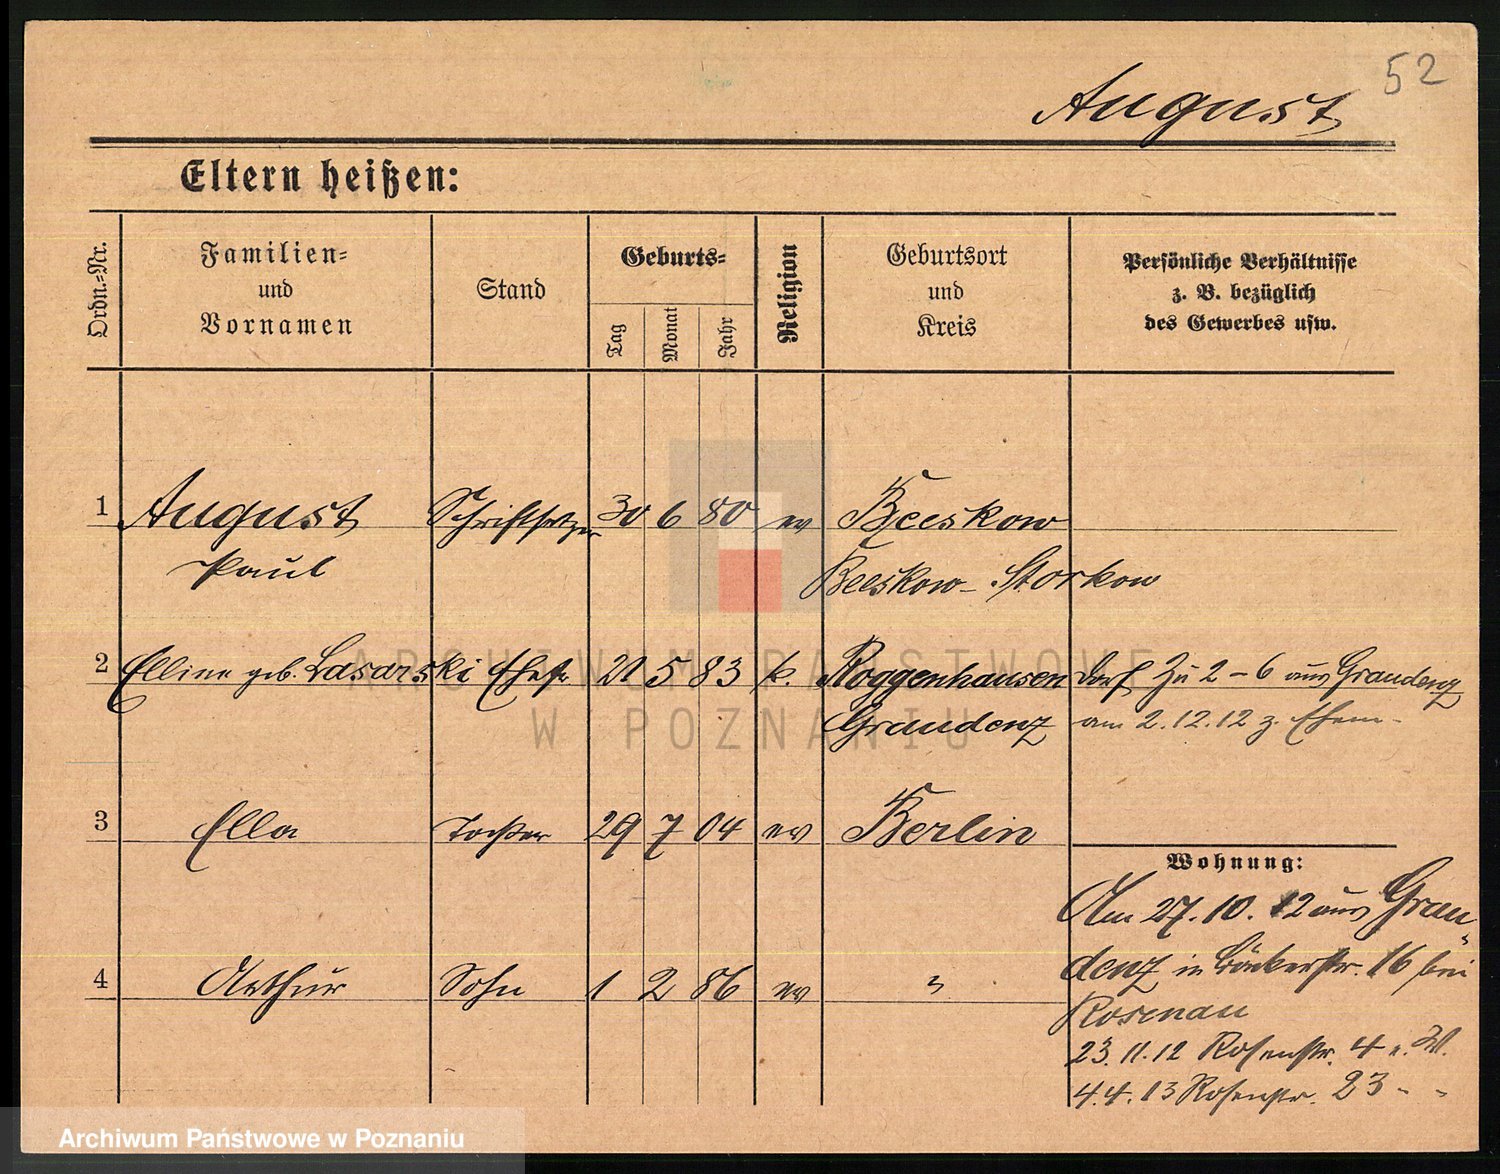 52
August
Eltern heißen:
Ordn.-Nr.
Familien-
und
Vornamen
Stand
Geburts-
Tag
Monat
Jahr
Religion
Geburtsort
und
Kreis
Persönliche Verhältnisse
z. B. bezüglich
des Gewerbes usw.
1 August Schriftsetzer 30 6 80 ev Beeskow
Paul Beeskow-Storkow
2 Elline geb. Lasarski Ehefr 21 5 83 k. Roggenhausen Dorf Zu 2-6 aus Graudenz
Graudenz am 2.12.12 z. Ehem-
ARCHIWUM PAŃSTWOWE
W POZNANIU
3 Ella Tochter 29 7 04 ev Berlin
Wohnung:
Am 27.10.12 aus Grau
4 Arthur Sohn 1 2 86 ev "
denz in Bäckerstr. 16 bei
Rosenau
23.11.12 Rosenstr. 4 e. W.
4.4.13 Rosenstr. 23 - -
Archiwum Państwowe w Poznaniu